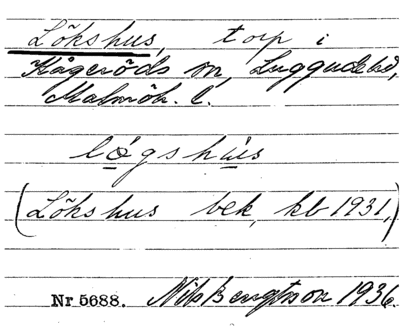 Lökshus, torp i
Kågeröds sn, Luggude hd,
Malmöh. l.
lǫ́gshús
(Lökshus bek, kb 1931,)
Nr 5688. Nils Bengtsson 1936.